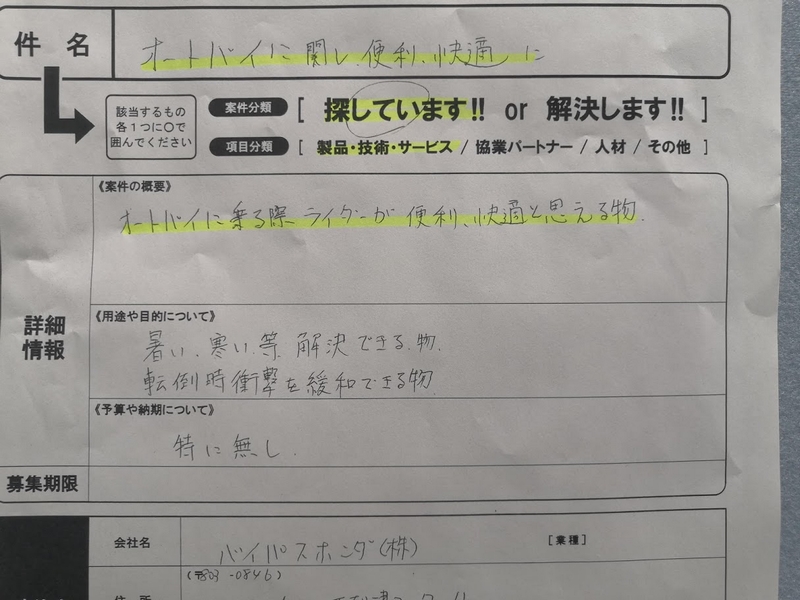 件名
オートバイに関し、便利、快適に
該当するもの
各1つに○で
囲んでください
案件分類 [ 探しています!! or 解決します!! ]
項目分類 [ 製品・技術・サービス / 協業パートナー / 人材 / その他 ]
詳細
情報
《案件の概要》
オートバイに乗る際、ライダーが便利、快適と思える物.
《用途や目的について》
暑い、寒い、等、解決できる物.
転倒時衝撃を緩和できる物
《予算や納期について》
特に無し.
募集期限
会社名
バイパスホンダ(株)
[業種]
(〒803-0846)
住所